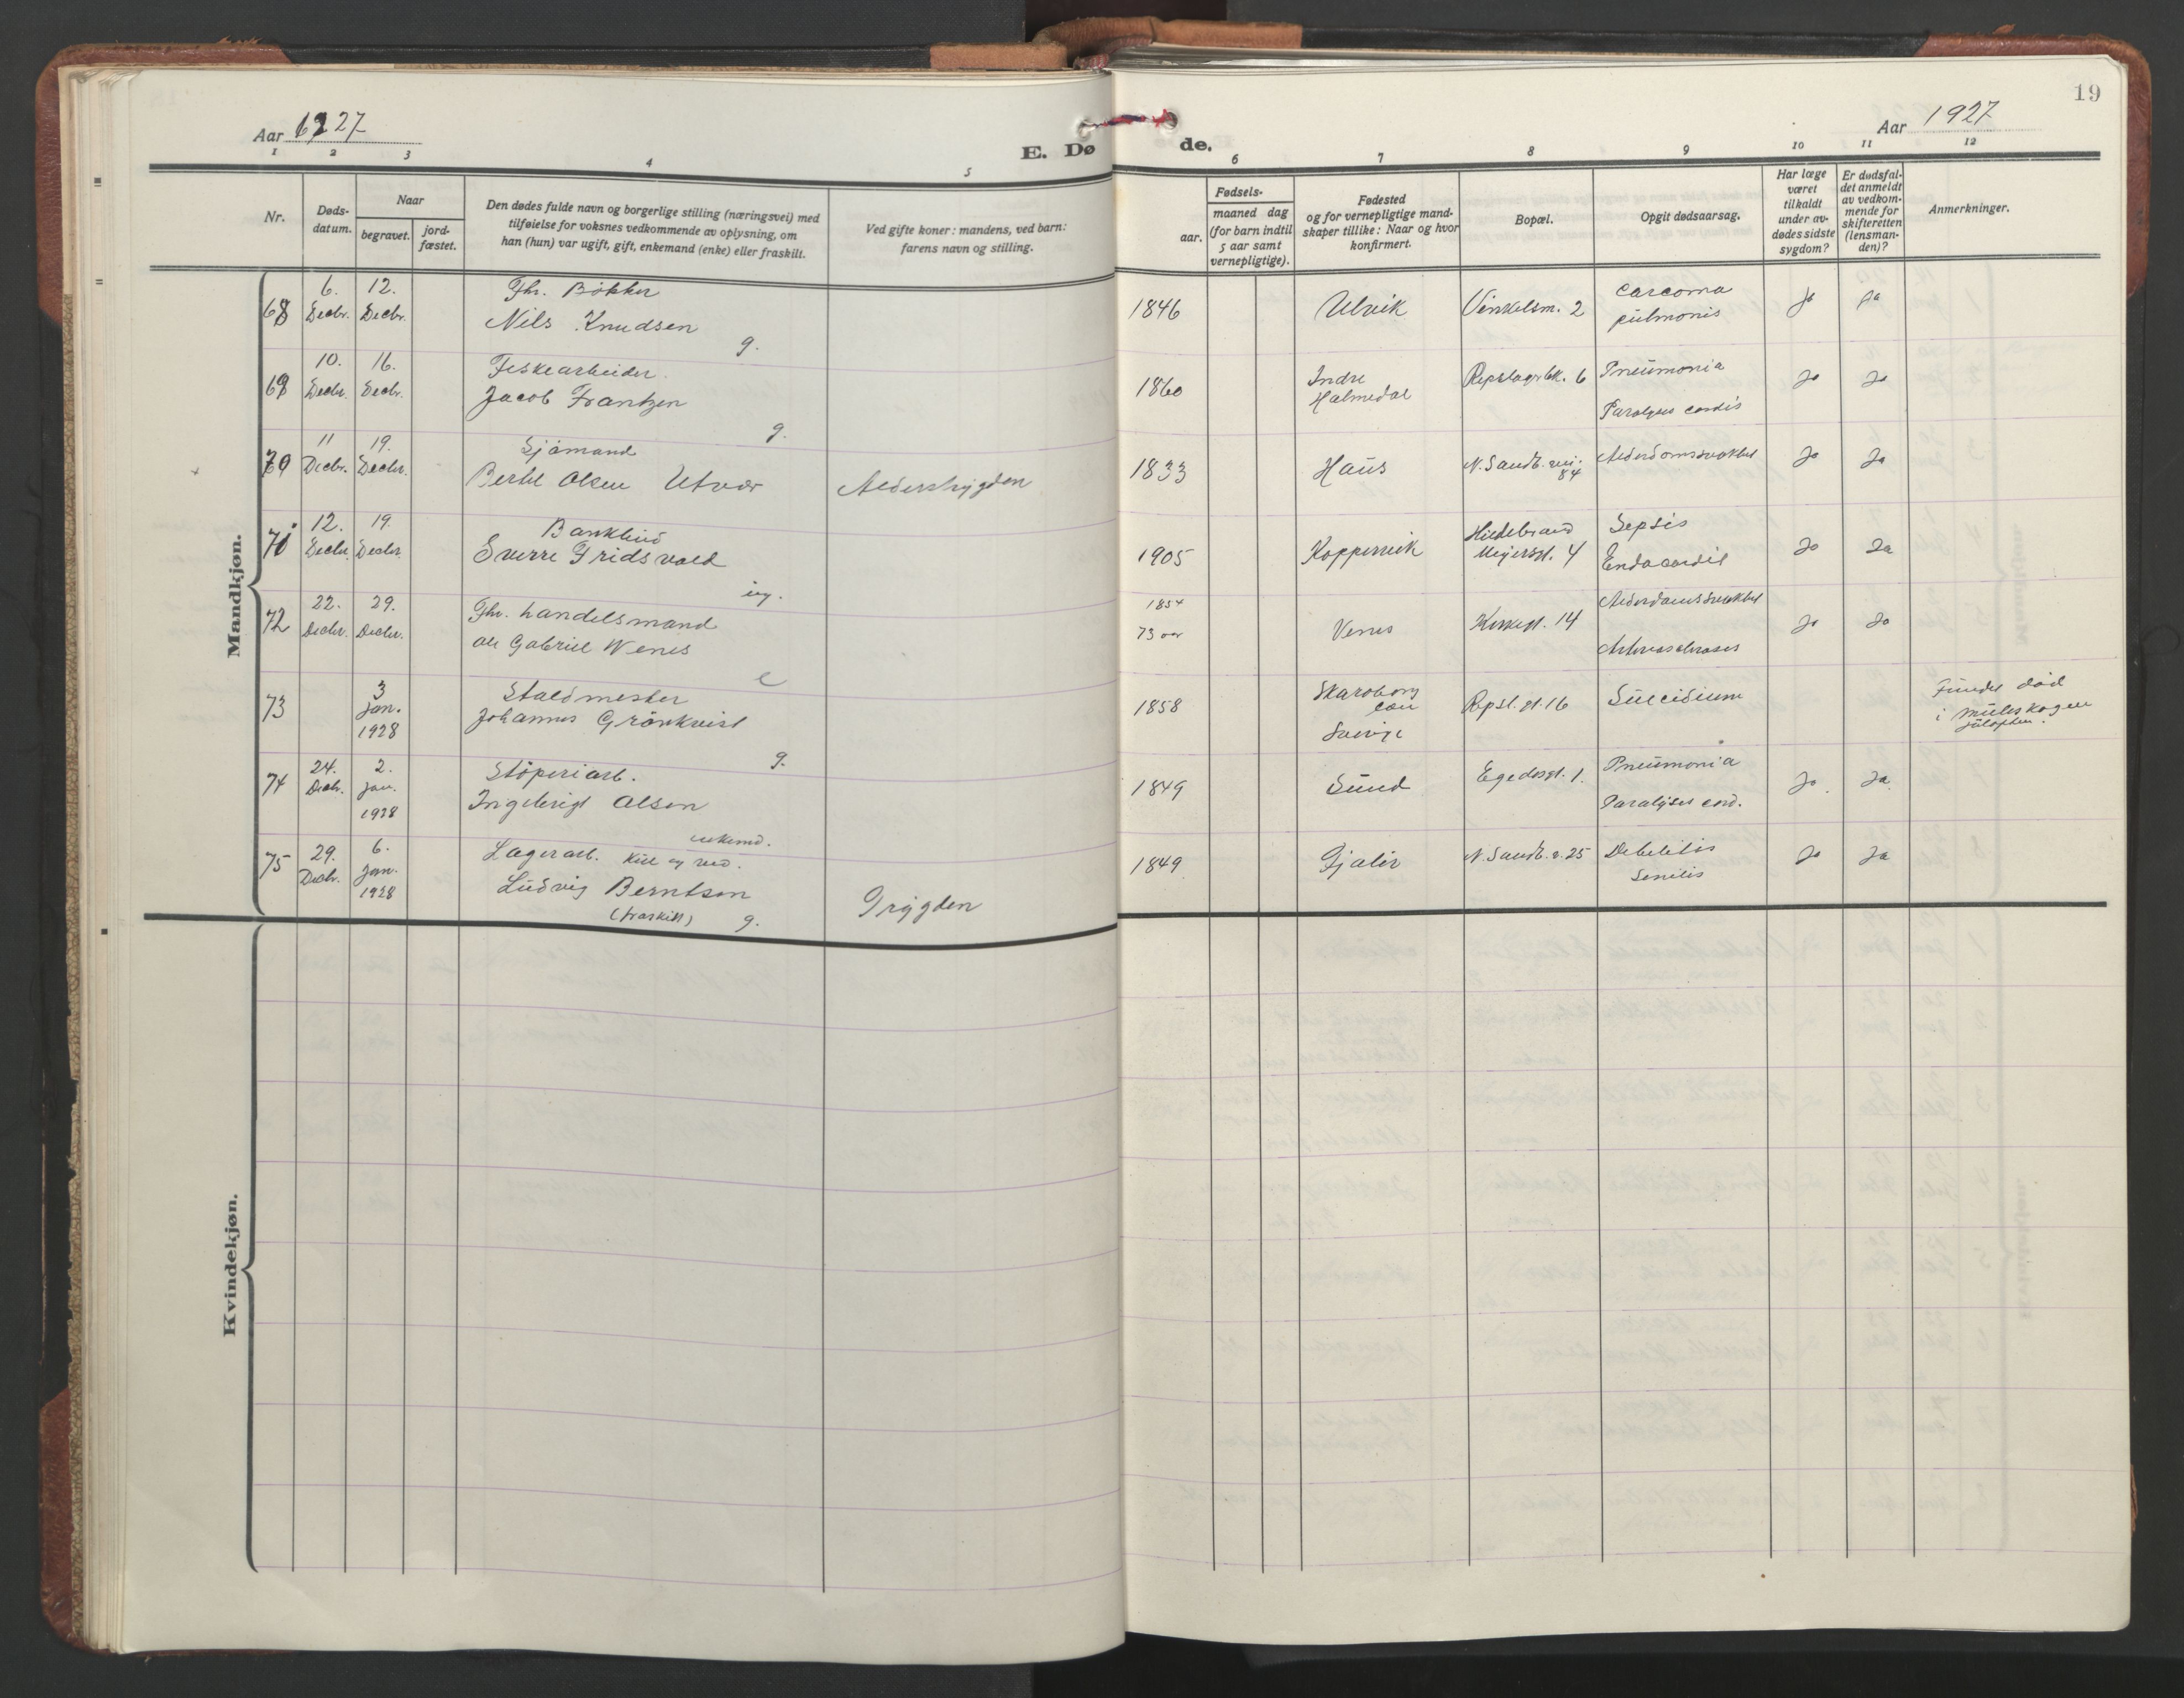 19
Aar 1927
Aar 1927
E. Dø de.
1 2 3 4 5 6 7 8 9 10 11 12
Nr.
Døds-
datum.
Naar
begravet.
jord-
fæstet.
Den dødes fulde navn og borgerlige stilling (næringsvei) med
tilføielse for voksnes vedkommende av oplysning, om
han (hun) var ugift, gift, enkemand (enke) eller fraskilt.
Ved gifte koner: mandens, ved barn:
farens navn og stilling.
Fødsels-
aar.
maaned dag
(for barn indtil
5 aar samt
vernepligtige).
Fødested
og for vernepligtige mand-
skaper tillike: Naar og hvor
konfirmert.
Bopæl.
Opgit dødsaarsag.
Har læge
været
tilkaldt
under av-
dødes sidste
sygdom?
Er dødsfal-
det anmeldt
av vedkom-
mende for
skifteretten
(lensman-
den)?
Anmerkninger.
Mandkjøn.
68 6. Decbr. 12. Decbr. Fhv. Bøkker
Nils Knudsen g.
1846 Ulvik Vinkelsm. 2 Carcoma
pulmonis Ja Ja
69 10. Decbr. 16. Decbr. Fiskearbeider
Jacob Frantzen g.
1860 Indre
Holmedal Repslagerbk. 6 Pneumonia
Paralysis cordis Ja Ja
70 11 Decbr. 19. Decbr. Sjømand
Bertel Olsen Utvær Alderstrygden
1833 Haus N. Sandb. vei. 84 Alderdomssvakhet Ja Ja
71 12. Decbr. 19. Decbr. Bankbud
Sverre Fridsvold ug.
1905 Koppervik Hildebrand
Meijersgt. 4 Sepsis
Endocardit Ja Ja
72 22. Decbr. 29. Decbr. Fhv. handelsmand
Ole Gabriel Wenes e
1854
73 aar Venes Kirkegt. 14 Alderdomssvakhet
Arteriosclerosis Ja Ja
73 3 Jan. 1928 Staldmester
Johannes Grönkvist g.
1858 Skaraborg
län
Sverige Repsl. gt. 16 Suicidium
Fundet död
i Muleskogen
julaften.
74 24. Decbr. 2. Jan. 1928 Støperiarb.
Ingebrigt Olsen enkemd.
1849 Sund Egedesgt. 1. Pneumonia
Paralyses cord. Ja Ja
75 29. Decbr. 6. Jan. 1928 Lagerarb. Kul og ved.
Ludvig Berntsen
(fraskilt) g. Trygden
1849 Gjalör N. Sandb. v. 25 Debilitis
Senilis Ja Ja
Kvindekjøn.